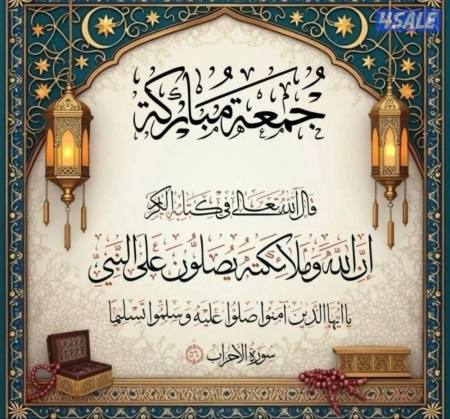 4SALE
جُمعَة مُبَاركَة
قال الله تعالى في كتابه الكريم
إن الله وملائكته يصلون على النبي
يا أيها الذين آمنوا صلوا عليه وسلموا تسليما
سورة الأحزاب ٥٦